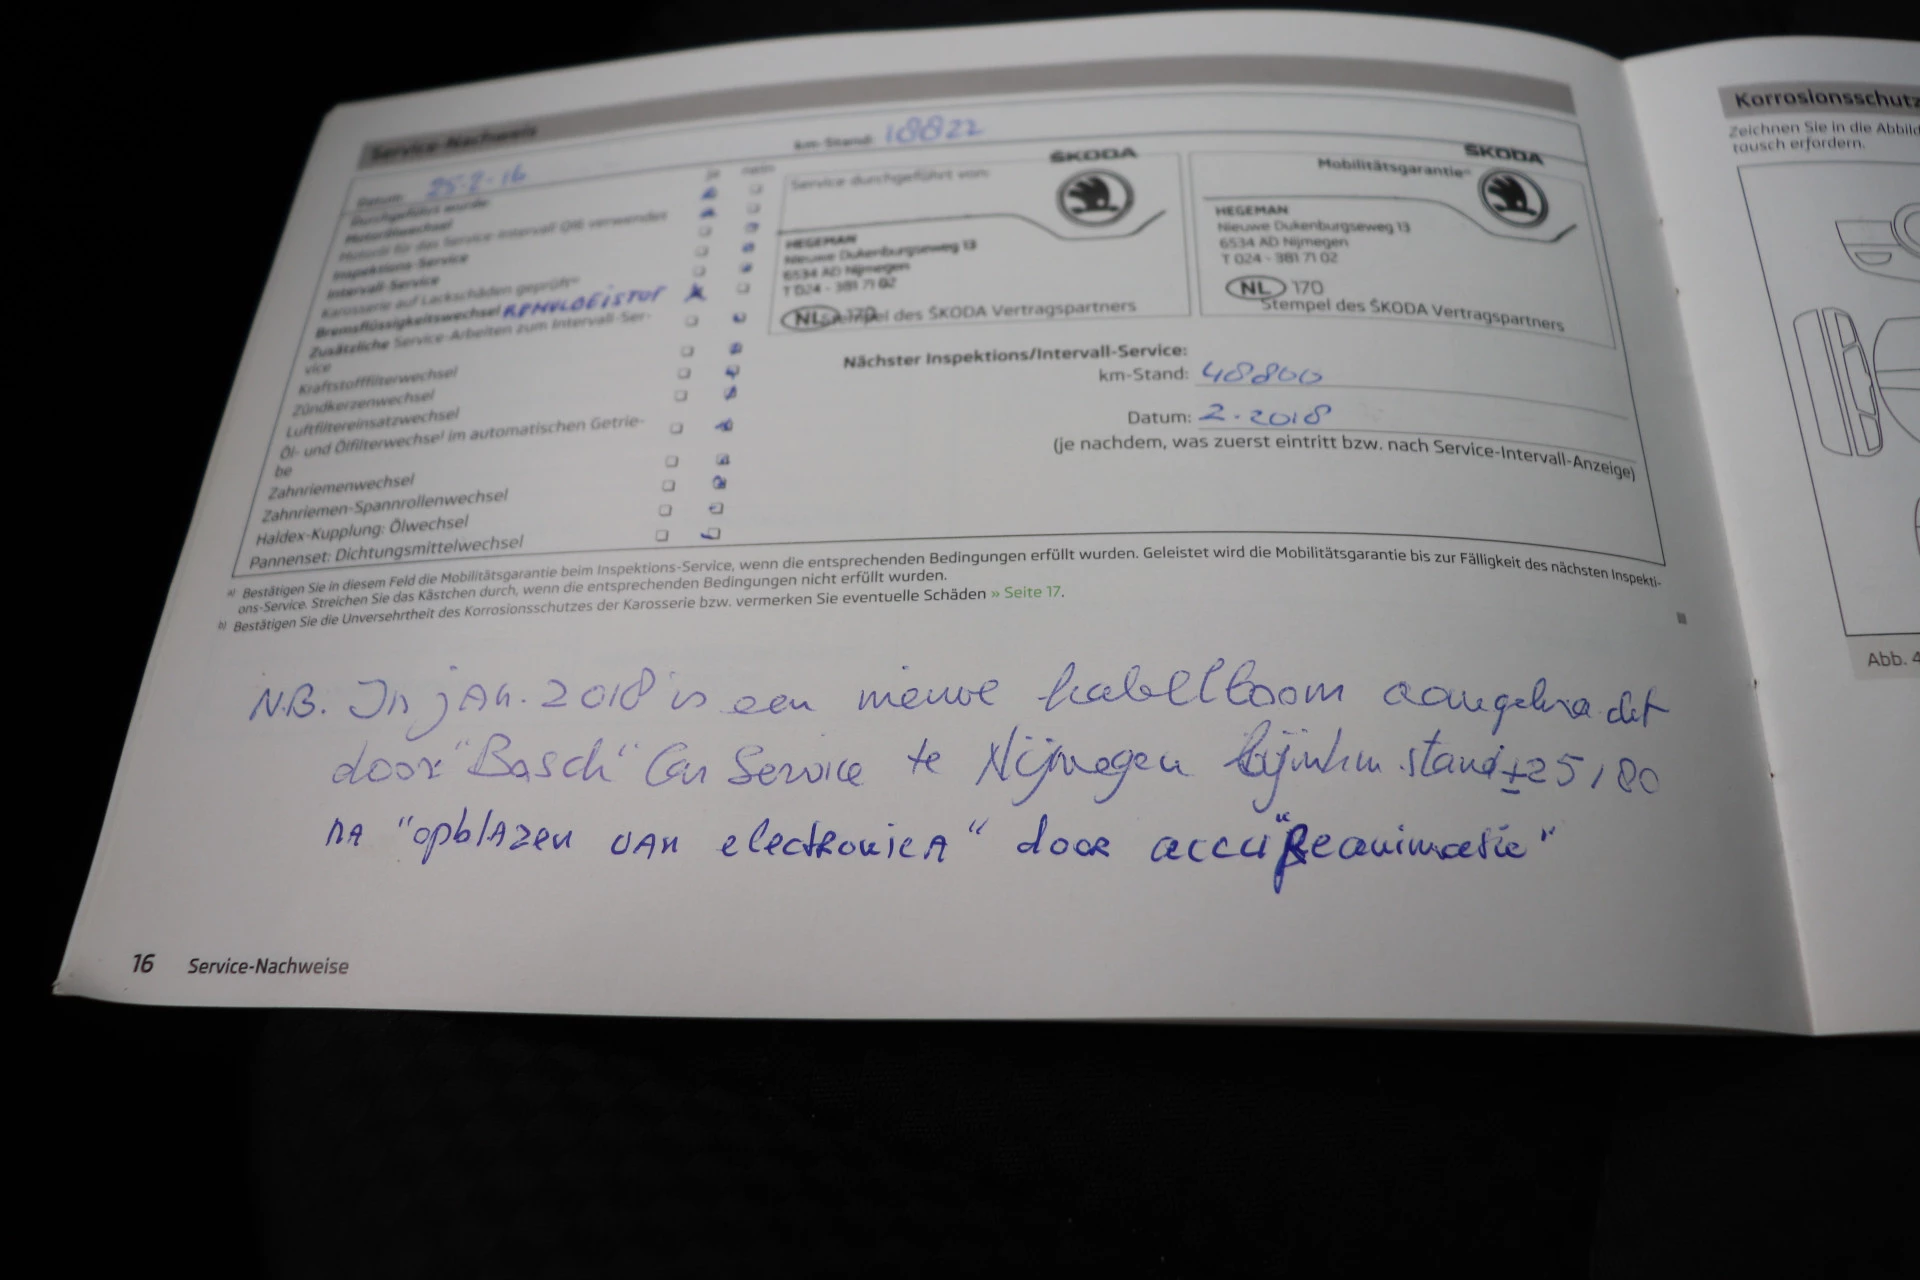 Service-Nachweis
Datum 25-2-16
km-Stand: 18822
Durchgeführt wurde: ja nein
Motorölwechsel
Motoröl für das Service-Intervall QI6 verwendet
Inspektions-Service
Intervall-Service
Karosserie auf Lackschäden geprüft b)
Bremsflüssigkeitswechsel REMVLOEISTOF
Zusätzliche Service-Arbeiten zum Intervall-Ser-
vice
Kraftstofffilterwechsel
Zündkerzenwechsel
Luftfiltereinsatzwechsel
Öl- und Ölfilterwechsel im automatischen Getrie-
be
Zahnriemenwechsel
Zahnriemen-Spannrollenwechsel
Haldex-Kupplung: Ölwechsel
Pannenset: Dichtungsmittelwechsel
Service durchgeführt von:
ŠKODA
HEGEMAN
Nieuwe Dukenburgseweg 13
6534 AD Nijmegen
T 024 - 381 71 02
NL 170
Stempel des ŠKODA Vertragspartners
Mobilitätsgarantie a)
ŠKODA
HEGEMAN
Nieuwe Dukenburgseweg 13
6534 AD Nijmegen
T 024 - 381 71 02
NL 170
Stempel des ŠKODA Vertragspartners
Nächster Inspektions/Intervall-Service:
km-Stand: 48800
Datum: 2-2018
(je nachdem, was zuerst eintritt bzw. nach Service-Intervall-Anzeige)
a) Bestätigen Sie in diesem Feld die Mobilitätsgarantie beim Inspektions-Service, wenn die entsprechenden Bedingungen erfüllt wurden. Geleistet wird die Mobilitätsgarantie bis zur Fälligkeit des nächsten Inspekti-
ons-Service. Streichen Sie das Kästchen durch, wenn die entsprechenden Bedingungen nicht erfüllt wurden.
b) Bestätigen Sie die Unversehrtheit des Korrosionsschutzes der Karosserie bzw. vermerken Sie eventuelle Schäden » Seite 17.
N.B. In jan. 2018 is een nieuwe kabelboom aangebracht
door "Bosch" Car Service te Nijmegen bij km stand ±25180
na "opblazen van electronica" door accu "Reanimatie"
16 Service-Nachweise
Korrosionsschutz
Zeichnen Sie in die Abbild
tausch erfordern.
Abb. 4